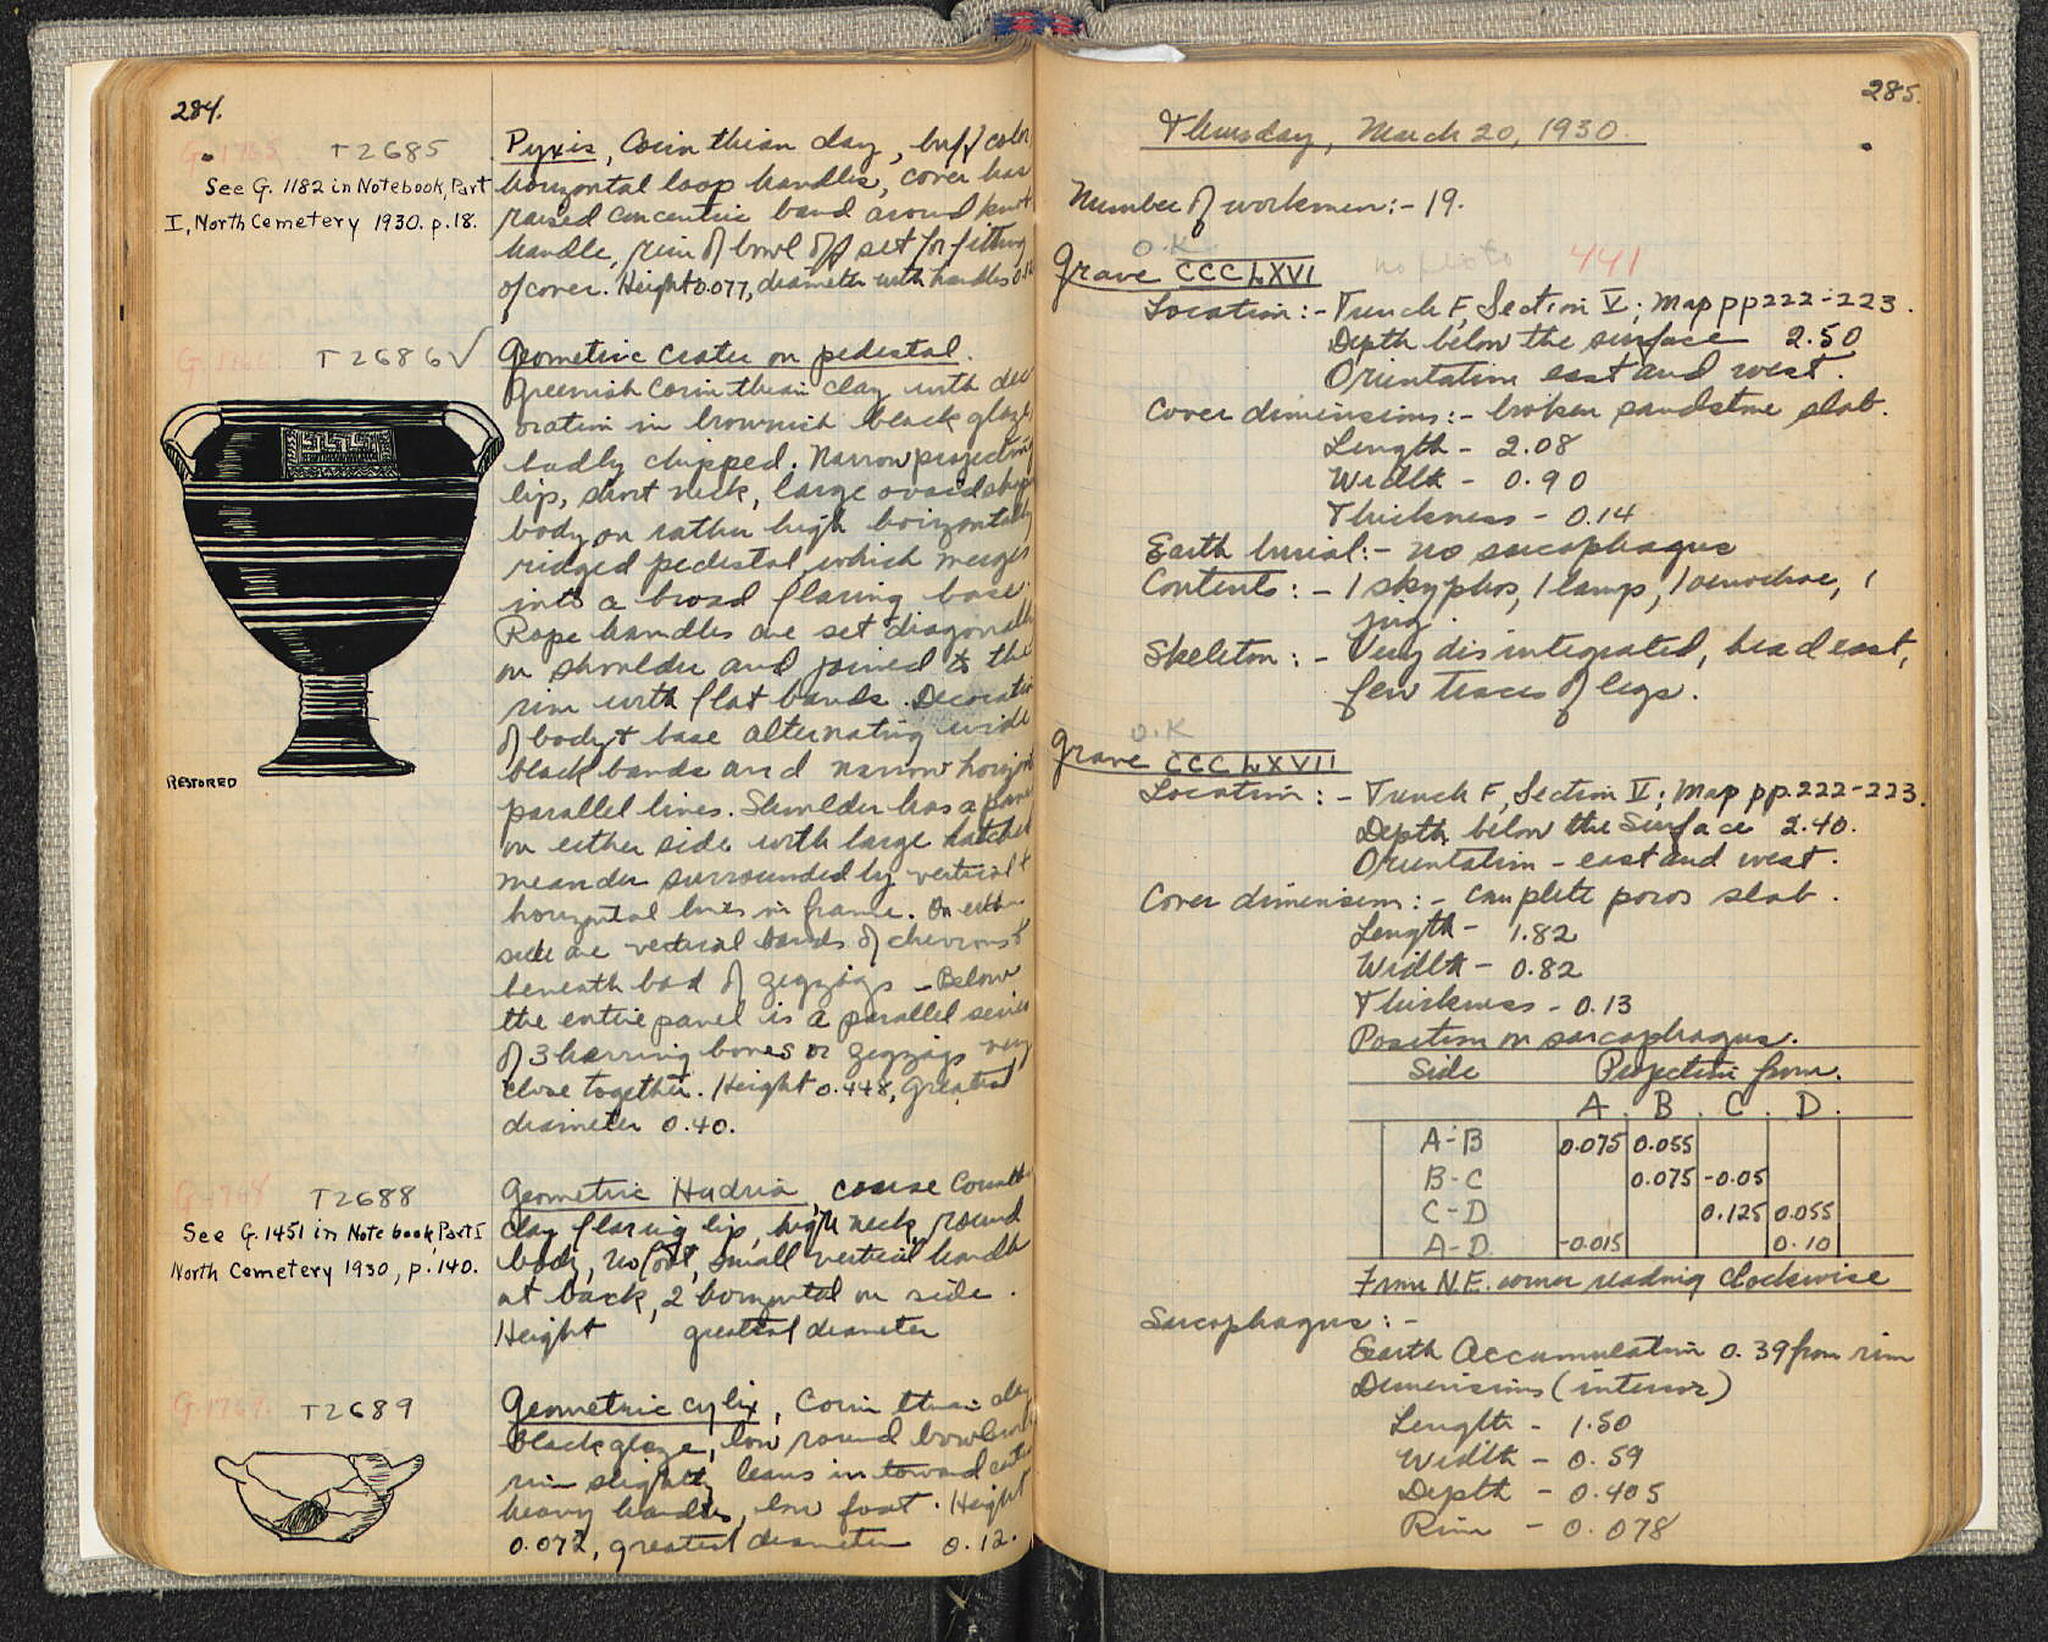 284.
T2685
See G. 1182 in Notebook, Part
I, North Cemetery 1930. p.18.
Pyxis, Corinthian clay, buff color
horizontal loop handles, cover has
raised concentric band around knot
handle, rim of bowl off set for fitting
of cover. Height 0.077, diameter with handles
T2686 ✓
RESTORED
Geometric Crater on pedestal.
Greenish Corinthian clay with dec
oration in brownish black glaze
badly chipped. Narrow projecting
lip, short neck, large ovoid shape
body on rather high horizontally
ridged pedestal which merges
into a broad flaring base.
Rope handles are set diagonally
on shoulder and joined to the
rim with flat bands. Decoration
of body + base alternating wide
black bands and narrow horizont
parallel lines. Shoulder has a panel
on either side with large hatched
meander surrounded by vertical +
horizontal lines in frame. On either
side are vertical bands of chevrons &
beneath bad of zigzags - Below
the entire panel is a parallel series
of 3 herring bones or zigzags very
close together. Height 0.448, greatest
diameter 0.40.
T2688
See G. 1451 in Notebook, Part I
North Cemetery 1930, p. 140.
Geometric Hydria, coarse Corinth
clay flaring lip, high neck, round
body, no foot, small vertical handle
at back, 2 horizontal on side.
Height greatest diameter
T2689
Geometric cylix, Corinthian clay
black glaze, low round bowl with
rim slightly leans in toward center
heavy handles, low foot. Height
0.072, greatest diameter 0.12.
285.
Thursday, March 20, 1930.
Number of workmen:- 19.
O.K. no photo 441
Grave CCCLXVI
Location:- Trench F, Section V; Map pp 222-223.
Depth below the surface 2.50
Orientation east and west.
Cover dimensions:- broken sandstone slab.
Length - 2.08
Width - 0.90
Thickness - 0.14
Earth burial:- no sarcophagus
Contents:- 1 skyphos, 1 lamp, 1 oenochoe, 1
jug.
Skeleton:- Very disintegrated, head east,
few traces of legs.
O.K
Grave CCCLXVII
Location:- Trench F, Section V; Map pp. 222-223.
Depth below the surface 2.40.
Orientation - east and west.
Cover dimensions:- complete poros slab.
Length - 1.82
Width - 0.82
Thickness - 0.13
Position on sarcophagus.
Side Projection from.
A. B. C. D.
A-B 0.075 0.055
B-C 0.075 -0.05
C-D 0.125 0.055
A-D -0.015 0.10
From N.E. corner reading clockwise
Sarcophagus:-
Earth Accumulation 0.39 from rim
Dimensions (interior)
Length - 1.50
Width - 0.59
Depth - 0.405
Rim - 0.078